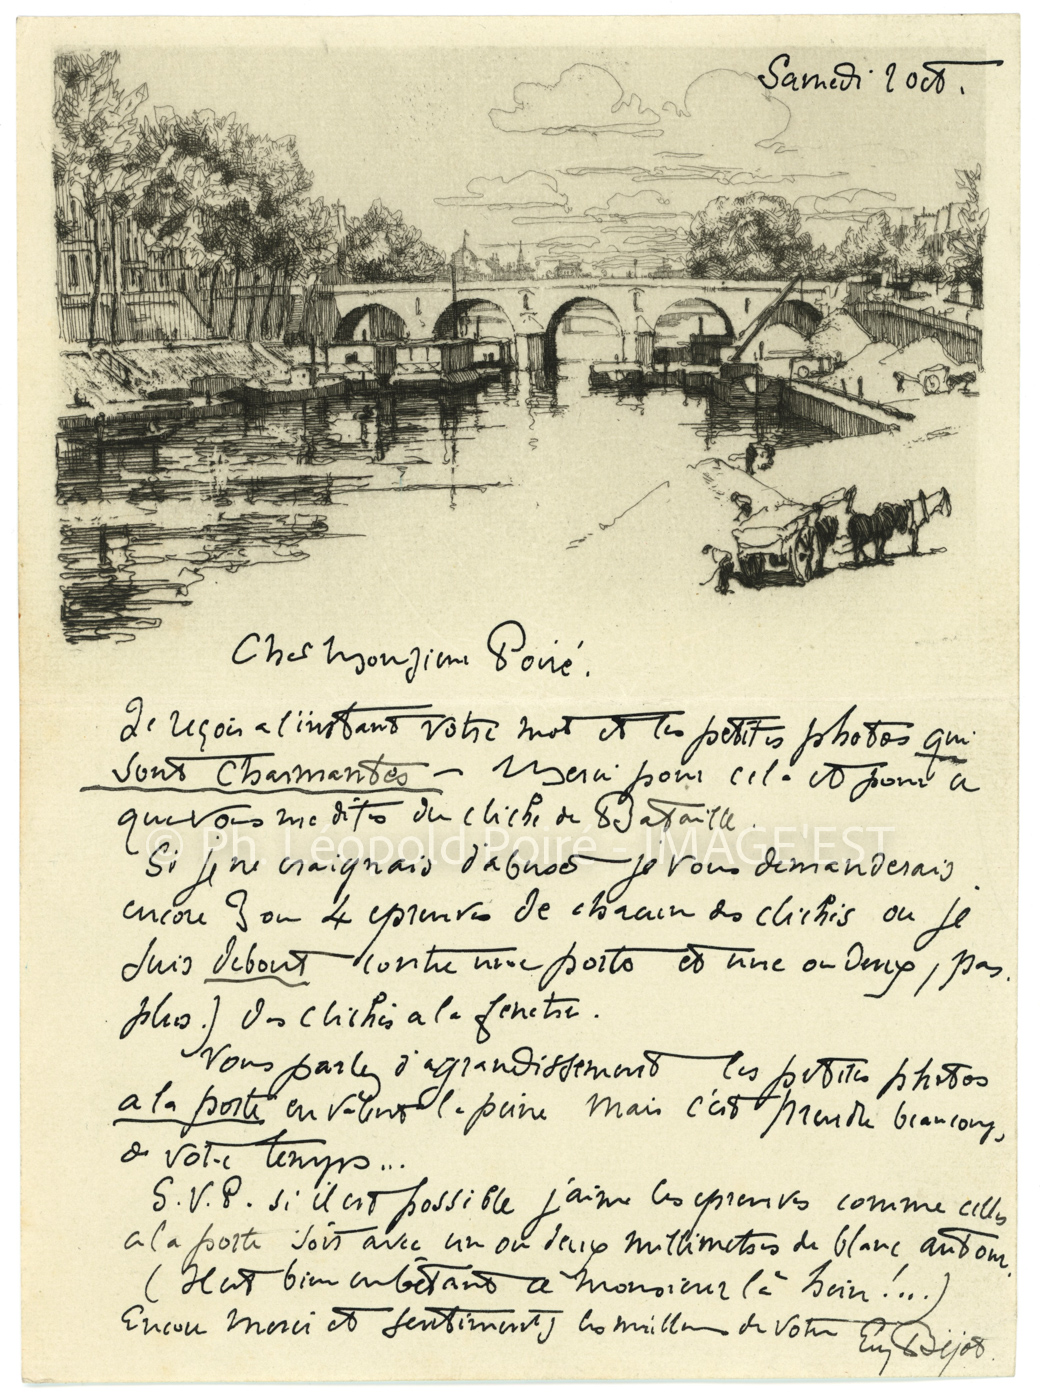 Samedi 2 oct.
Cher Monsieur Poiré.
Je reçois a l'instant votre mot et les petites photos qui
sont charmantes – Merci pour cela et pour ce
que vous me dites du cliché de Bataille.
© Ph. Léopold Poiré - IMAGE'EST
Si je ne craignais d'abuser je vous demanderais
encore 3 ou 4 epreuves de chacun des clichés ou je
suis debout contre une porte et une ou deux, pas
plus.) des clichés a la fenetre.
Vous parlez d'agrandissement les petites photos
a la porte en valent la peine mais c'est prendre beaucoup
de votre temps...
S.V.P. si il est possible j'aime les epreuves comme celles
a la porte soit avec un ou deux millimetres de blanc autour.
( Il est bien embêtant ce monsieur là hein !...)
Encore merci et sentiments les meilleurs de votre Eug Béjot.